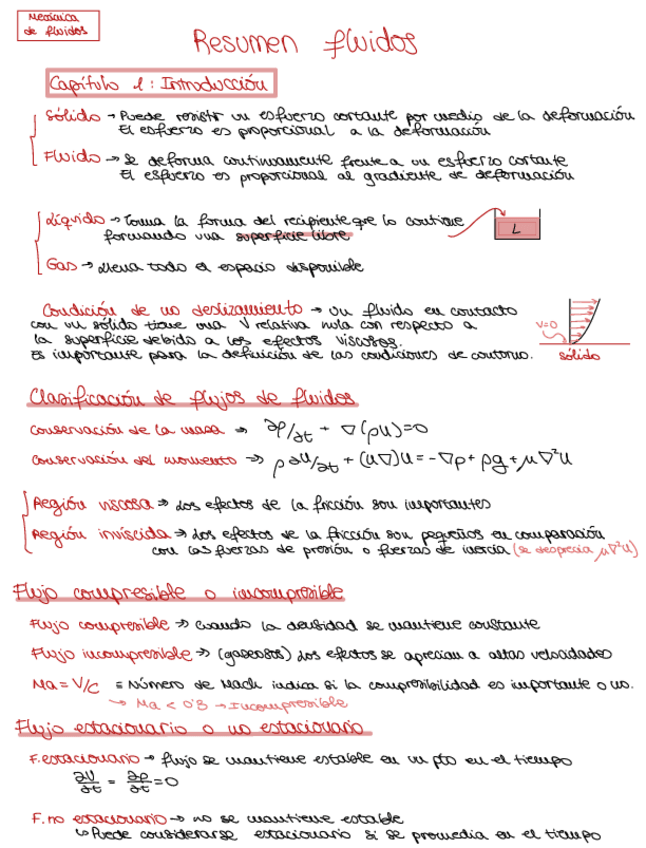 Mecánica
de fluidos
Resumen fluidos
Capítulo 1: Introducción
Sólido → Puede resistir un esfuerzo cortante por medio de la deformación
El esfuerzo es proporcional a la deformación
Fluido → Se deforma continuamente frente a un esfuerzo cortante
El esfuerzo es proporcional al gradiente de deformación
Líquido → Toma la forma del recipiente que lo contiene
formando una superficie libre
L
Gas → Llena todo el espacio disponible
Condición de no deslizamiento → Un fluido en contacto
con un sólido tiene una V relativa nula con respecto a
la superficie debido a los efectos viscosos.
Es importante para la definición de las condiciones de contorno.
V=0
sólido
Clasificación de flujos de fluidos
Conservación de la masa → ∂ρ/∂t + ∇(ρu)=0
Conservación del momento → ρ ∂u/∂t + (u∇)u = -∇p + ρg + μ∇²u
Región viscosa → Los efectos de la fricción son importantes
Región inviscida → Los efectos de la fricción son pequeños en comparación
con las fuerzas de presión o fuerzas de inercia (se desprecia μ∇²u)
Flujo compresible o incompresible
Flujo compresible → Cuando la densidad se mantiene constante
Flujo incompresible → (gaseosos) Los efectos se aprecian a altas velocidades
Ma = V/C = Número de Mach indica si la compresibilidad es importante o no.
→ Ma < 0'3 → Incompresible
Flujo estacionario o no estacionario
F. estacionario → flujo se mantiene estable en un pto en el tiempo
∂V/∂t = ∂ρ/∂t = 0
F. no estacionario → no se mantiene estable
↳ Puede considerarse estacionario si se promedia en el tiempo